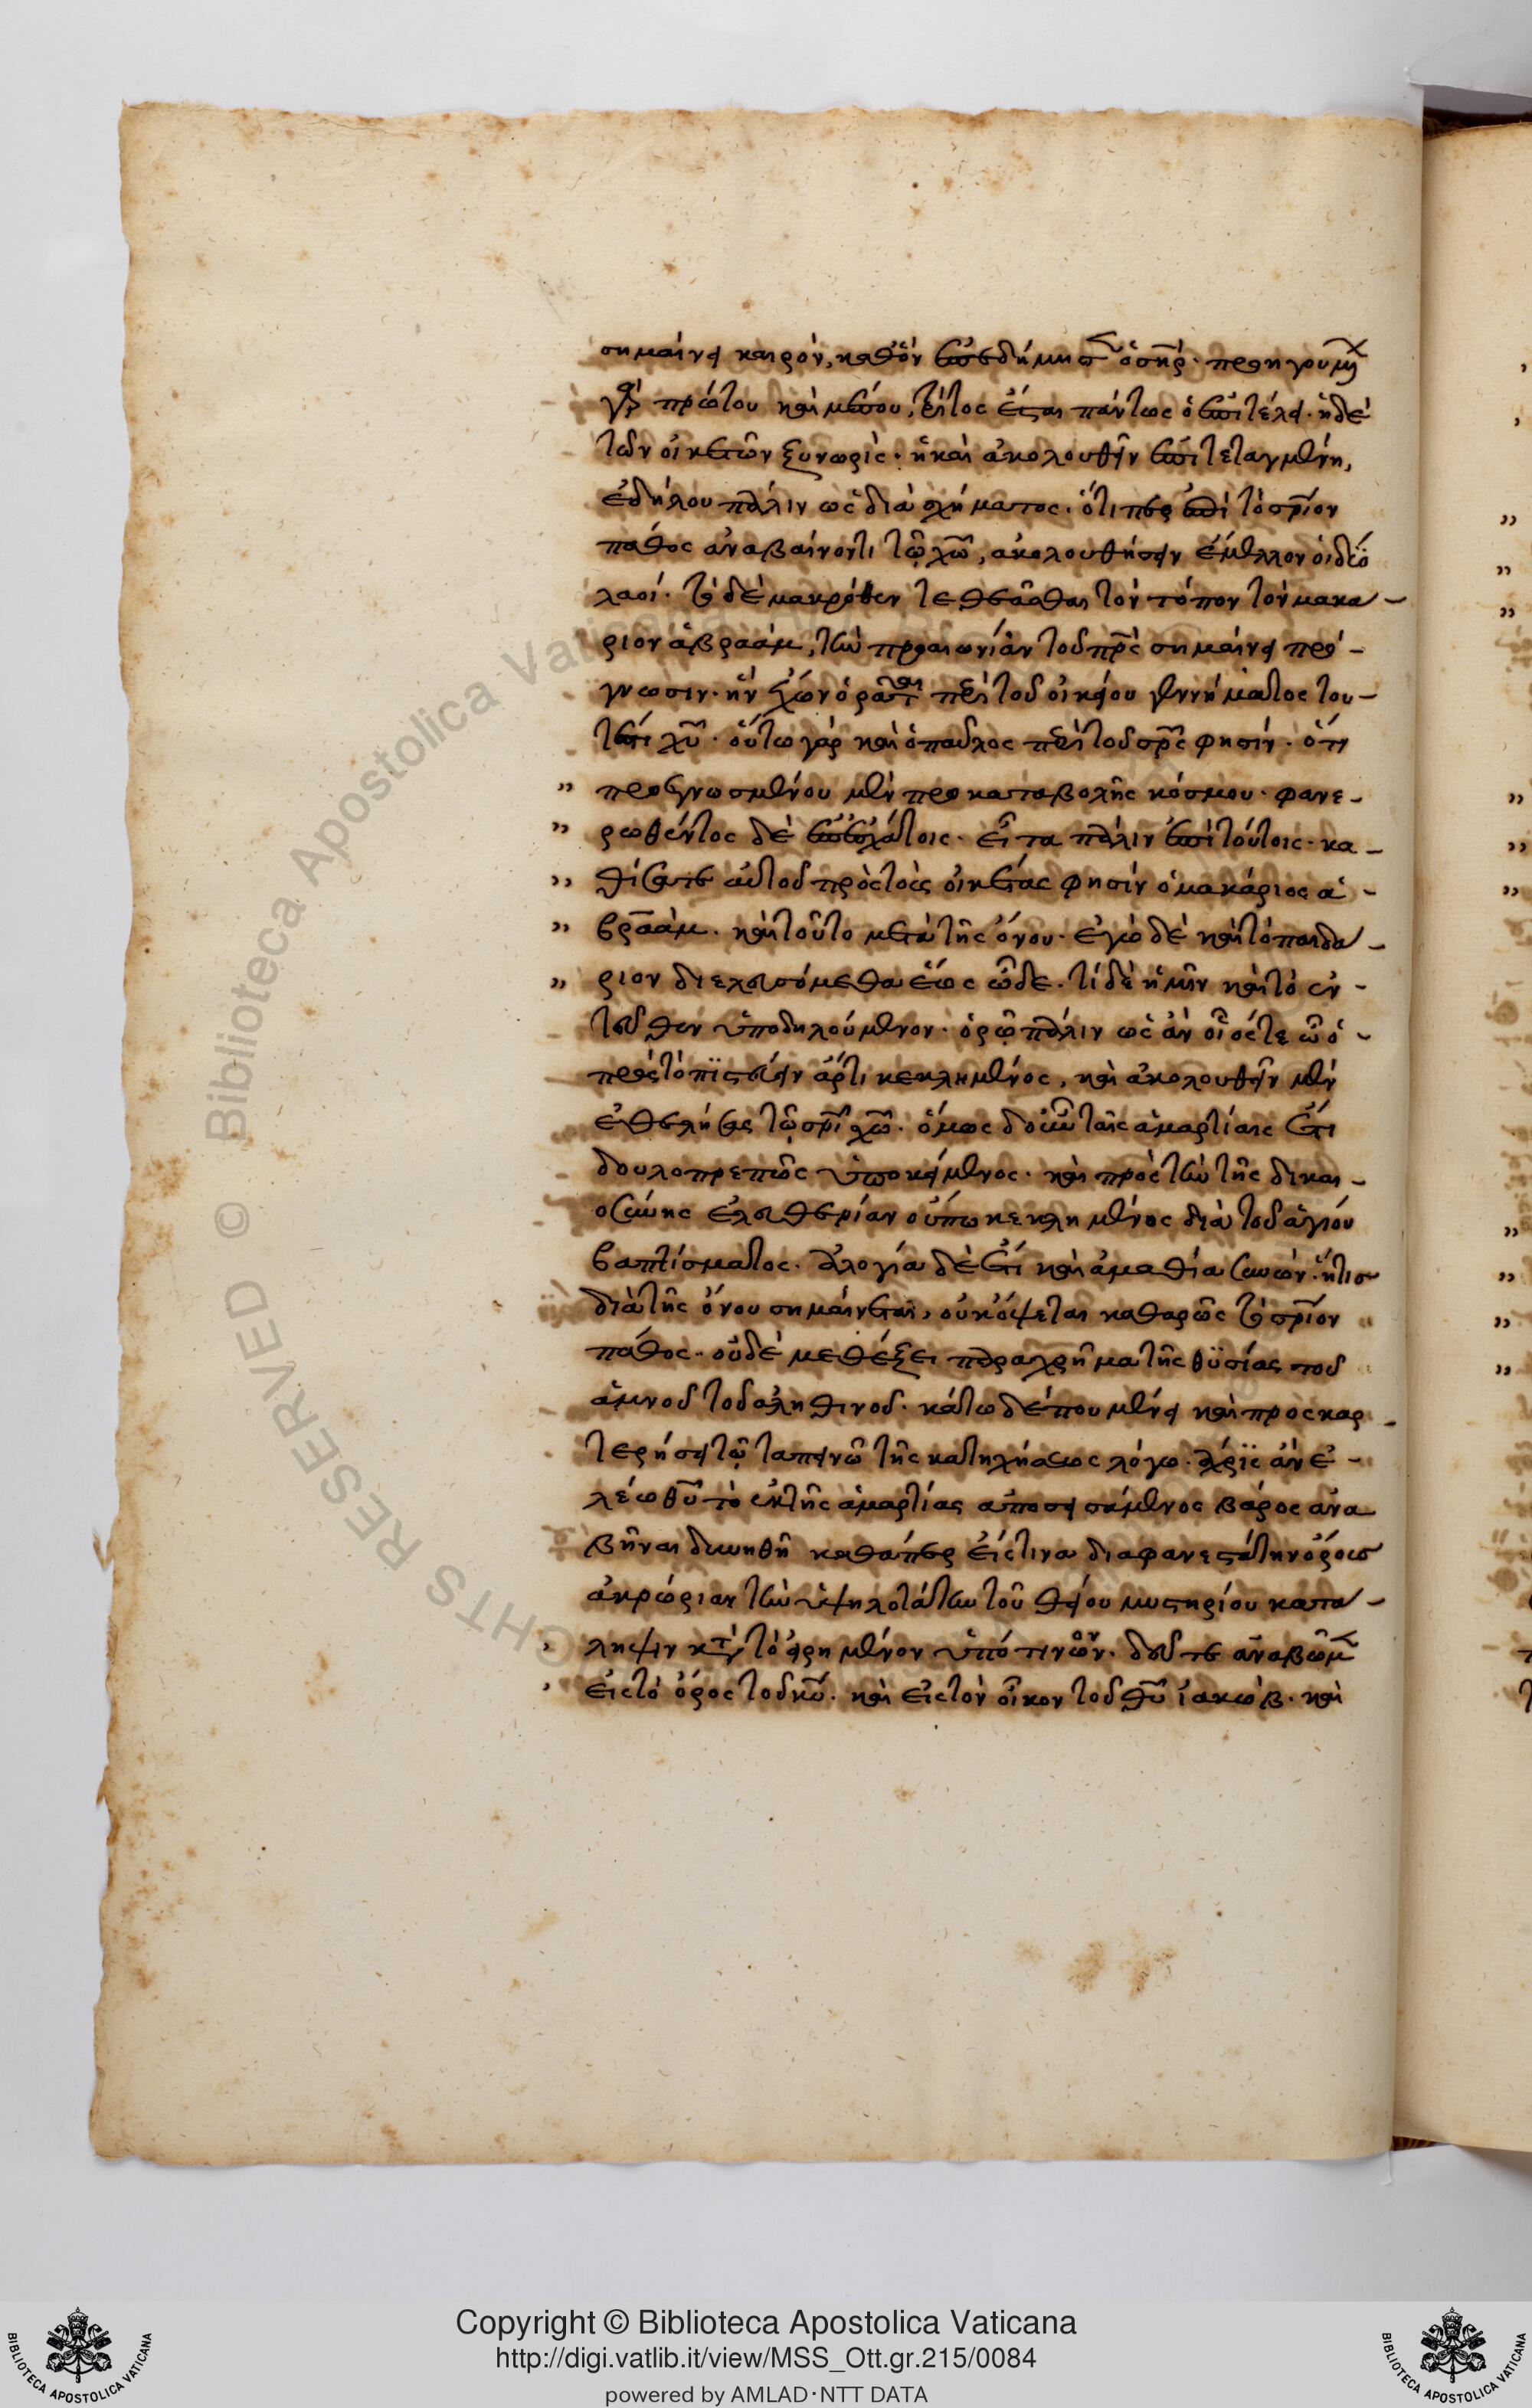 σημαίνει καιρόν, καθ' ὃν ἐπεδήμησεν ὁ σ̅η̅ρ̅. προηγουμ
γὰρ πρώτου καὶ μέσου, τρίτος ἔσται πάντως ὁ ἐπὶ τέλει. ἡ δὲ
τῶν οἰκετῶν ξυνωρὶς. ἡ καὶ ἀκολουθεῖν ἐπιτεταγμένη,
ἐδήλου πάλιν ὡς διὰ σχήματος. ὅτιπερ ἐπὶ τὸ σ̅ρ̅ιον
πάθος ἀναβαίνοντι τῷ χ̅ω̅, ἀκολουθήσειν ἔμελλον οἱ δύο
λαοί. τὸ δὲ μακρόθεν τεθεᾶσθαι τὸν τόπον τὸν μακα-
ριον ἀβραάμ, τὴν προαιωνίαν τοῦ π̅ρ̅ς̅ σημαίνει πρό-
γνωσιν. ἣν ἔχων ὁρᾶται περὶ τοῦ οἰκείου γεννήματος του-
τέστι χ̅υ̅. οὕτω γὰρ καὶ ὁ παῦλος περὶ τοῦ σ̅ρ̅ς̅ φησίν. ὅτι
" προεγνωσμένου μὲν προ καταβολῆς κόσμου. φανε-
" ρωθέντος δὲ ἐπ' ἐσχάτοις. εἶτα πάλιν ἐπὶ τούτοις. κα-
" θίσατε αὐτοῦ πρὸς τοὺς οἰκέτας φησίν ὁ μακάριος ἀ-
" βραάμ. καὶ τοῦτο μετὰ τῆς ὄνου. ἐγὼ δὲ καὶ τὸ παιδα-
" ριον διελευσόμεθα ἕως ὧδε. τί δὲ ἡμῖν καὶ τὸ ἐν-
τεῦθεν ὑποδηλούμενον. ὁρῶ πάλιν ὡς ἂν οἷός τε ὦ ὁ-
πρὸς τὸ πϊστεύειν ἄρτι κεκλημένος, καὶ ἀκολουθεῖν μὲν
ἐθελήσας τῷ σ̅ρ̅ι̅ χ̅ω̅. ὅμως δ' οὖν ταῖς ἁμαρτίαις ἔτι
δουλοπρεπῶς ὑποκείμενος. καὶ πρὸς τὴν τῆς δικαι-
οσύνης ἐλευθερίαν οὔπω κεκλημένος διὰ τοῦ ἁγίου
βαπτίσματος. ἀλογία δὲ ἔτι καὶ ἀμαθία συνών. ἥτισ
διὰ τῆς ὄνου σημαίνεται, οὐκ ὄψεται καθαρῶς τὸ σ̅ρ̅ιον
πάθος. οὐδὲ μεθέξει παραχρῆμα τῆς θϋσίας τοῦ
ἀμνοῦ τοῦ ἀληθινοῦ. κάτω δέ που μένει καὶ προσκαρ-
τερήσει τῷ ταπεινῶ τῆς κατηχήσεως λόγω. χάρϊς ἂν ἐ-
λέω θ̅υ̅ τὸ ἐκ τῆς ἁμαρτίας ἀποσεισάμενος βάρος ἀνα
βῆναι δυνηθῆ καθάπερ εἴς τινα διαφανεστάτην ὄρουσ
ἀκρώρειαν τὴν ὑψηλοτάτην τοῦ θείου μυστηρίου κατα-
, ληψιν κατὰ τὸ εἰρημένον ὑπό τινων. δεῦτε ἀναβῶμεν
, εἰς τὸ ὄρος τοῦ κ̅υ̅. καὶ εἰς τὸν οἶκον τοῦ θ̅υ̅ ἰακώβ. καὶ
Copyright © Biblioteca Apostolica Vaticana
http://digi.vatlib.it/view/MSS_Ott.gr.215/0084
powered by AMLAD·NTT DATA